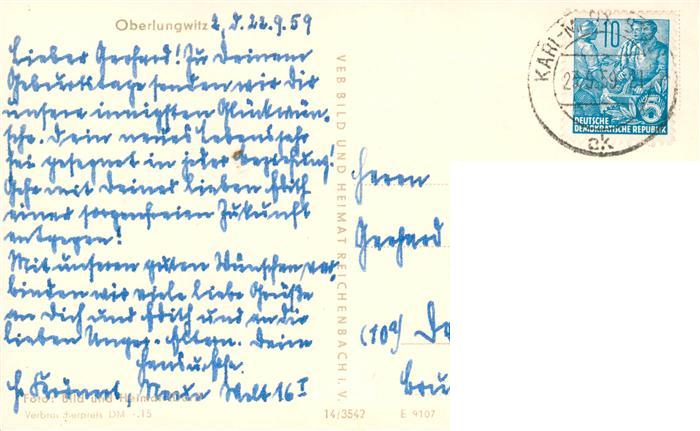 Oberlungwitz, d. 22.9.59
Lieber Gerhard! Zu Deinem
Geburtstage senden wir Dir
unsere innigsten Glückwün-
sche. Dein neues Lebensjahr
sei gesegnet in jeder Beziehung!
Geh mit Deiner lieben Edith
einer sorgenfreien Zukunft
entgegen!
Mit unseren guten Wünschen ver-
binden wir viele liebe Grüße
an Dich und Edith und an die
lieben Eltern. Deine
Welt 16 I
Foto: Bild und Heimat
Verbraucherpreis DM -.15
VEB BILD UND HEIMAT REICHENBACH I. V.
14/3542 E 9107
Herrn
Gerhard
(10a)
KARL-M
10
5
DEUTSCHE
DEMOKRATISCHE REPUBLIK
ak